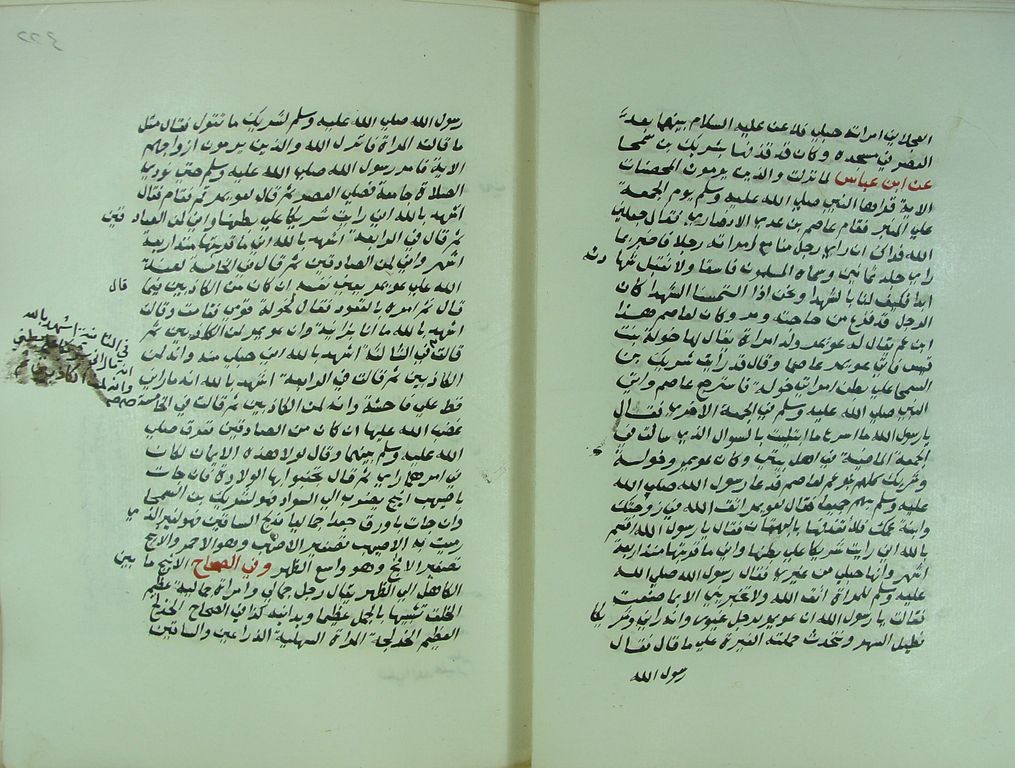 العجلاني امراته حبلى فلاعن عليه السلام بينهما بعد
العصر في مسجده وكان قد قذفها بشريك بن سحما
عن ابن عباس لما نزلت والذين يرمون المحصنات
الاية قراها النبي صلى الله عليه وسلم يوم الجمعة
على المنبر فقام عاصم بن عدي الانصاري فقال جعلني
الله فداك ان راى رجل منا مع امراته رجلا فاخبر بما
راى جلد ثمانين وسماه المسلمون فاسقا ولا تقبل شهادته
ابدا فكيف لنا بالشهدا ونحن اذا التمسنا الشهدا كان
الرجل قد فرغ من حاجته ومر وكان لعاصم هذا
ابن عم يقال له عويمر وله امراة يقال لها خولة بنت
قيس فاتى عويمر عاصما وقال قد رايت شريك بن
السحما على بطن امراتي خولة فاسترجع عاصم واتى
النبي صلى الله عليه وسلم في الجمعة الاخرى فقال
يا رسول الله ما اسرع ما ابتليت بالسوال الذي سالت في
الجمعة الماضية في اهل بيتي وكان عويمر وخولة
وشريك كلهم بنو عم لعاصم فدعا رسول الله صلى الله
عليه وسلم بهم جميعا فقال لعويمر اتق الله في زوجتك
وابنة عمك فلا تقذفها بالبهتان فقال يا رسول الله اقسم
بالله اني رايت شريكا على بطنها واني ما قربتها منذ اربعة
اشهر وانها حبلى من غيري فقال رسول الله صلى الله
عليه وسلم للمراة اتق الله ولا تخبريني الا بما صنعت
فقالت يا رسول الله ان عويمر رجل غيور وانه راني وشريكا
نطيل السهر ونتحدث فحملته الغيرة على ما قال فقال
رسول الله
رسول الله صلى الله عليه وسلم لشريك ما تقول فقال مثل
ما قالت المراة فانزل الله والذين يرمون ازواجهم
الاية فامر رسول الله صلى الله عليه وسلم حتى نودي
الصلاة جامعة فصلى العصر ثم قال لعويمر قم فقام فقال
اشهد بالله اني رايت شريكا على بطنها واني لمن الصادقين
ثم قال في الرابعة اشهد بالله اني ما قربتها منذ اربعة
اشهر واني لمن الصادقين ثم قال في الخامسة لعنة
الله على عويمر يعني نفسه ان كان من الكاذبين فيما قال
قال ثم امره بالقعود فقال لخولة قومي فقامت وقالت
اشهد بالله ما انا بزانية وان عويمر لمن الكاذبين ثم
قالت في الثالثة اشهد بالله اني حبلى منه وانه لمن
الكاذبين ثم قالت في الرابعة اشهد بالله انه ما راني
قط على فاحشة وانه لمن الكاذبين ثم قالت في الخامسة
غضب الله عليها ان كان من الصادقين ففرق صلى
الله عليه وسلم بينهما وقال لولا هذه الايمان لكان
في امرهما راي ثم قال تحينوا بها الولادة فان جات
باصيهب اثيبج يضرب الى السواد فهو لشريك بن السحما
وان جات باورق جعدا جماليا خدلج الساقين فهو لغير الذي
رميت به الاصيهب تصغير الاصهب وهو الاحمر والاثيبج
تصغير الاثبج وهو واسع الظهر وفي الصحاح الاثبج ما بين
الكاهل الى الظهر يقال رجل جمالي وامراة جمالية عظيم
الخلق تشبيها بالجمل عظما وبدانة كذا في الصحاح الخدلج
العظيم الخدلجة المراة الممتلية الذراعين والساقين
في الثانية اشهد بالله